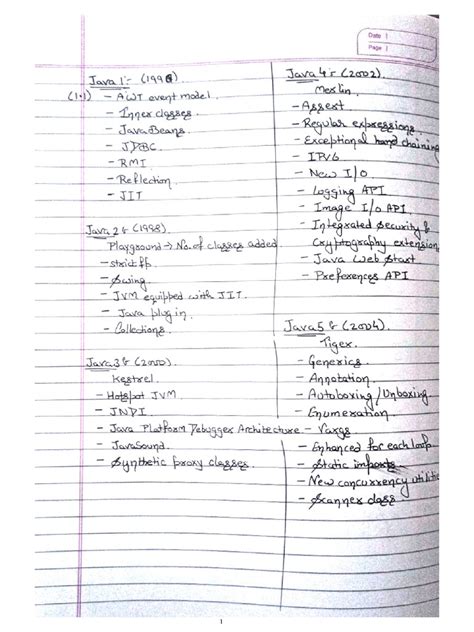 Date
Page
Java 1:- (1996)
(1.1) - AWT event model.
- Inner classes.
- JavaBeans.
- JDBC
- RMI
- Reflection
- JIT
Java 2:- (1998)
Playground → No. of classes added.
- strictfp
- Swing.
- JVM equipped with JIT.
- Java plug in.
- Collections.
Java 3:- (2000)
Kestrel
- Hotspot JVM
- JNDI
- Java Platform Debugger Architecture
- JavaSound.
- Synthetic proxy classes.
Java 4:- (2002)
Merlin
- Assert
- Regular expressions.
- Exceptional chaining
- IPV6
- New I/O
- Logging API
- Image I/O API
- Integrated Security &
Cryptography extension
- Java Web Start
- Preferences API
Java 5:- (2004)
Tiger
- Generics.
- Annotation.
- Autoboxing/Unboxing
- Enumeration.
- Vargs
- Enhanced for each loop
- Static imports
- New concurrency utilitie
- Scanner class
1